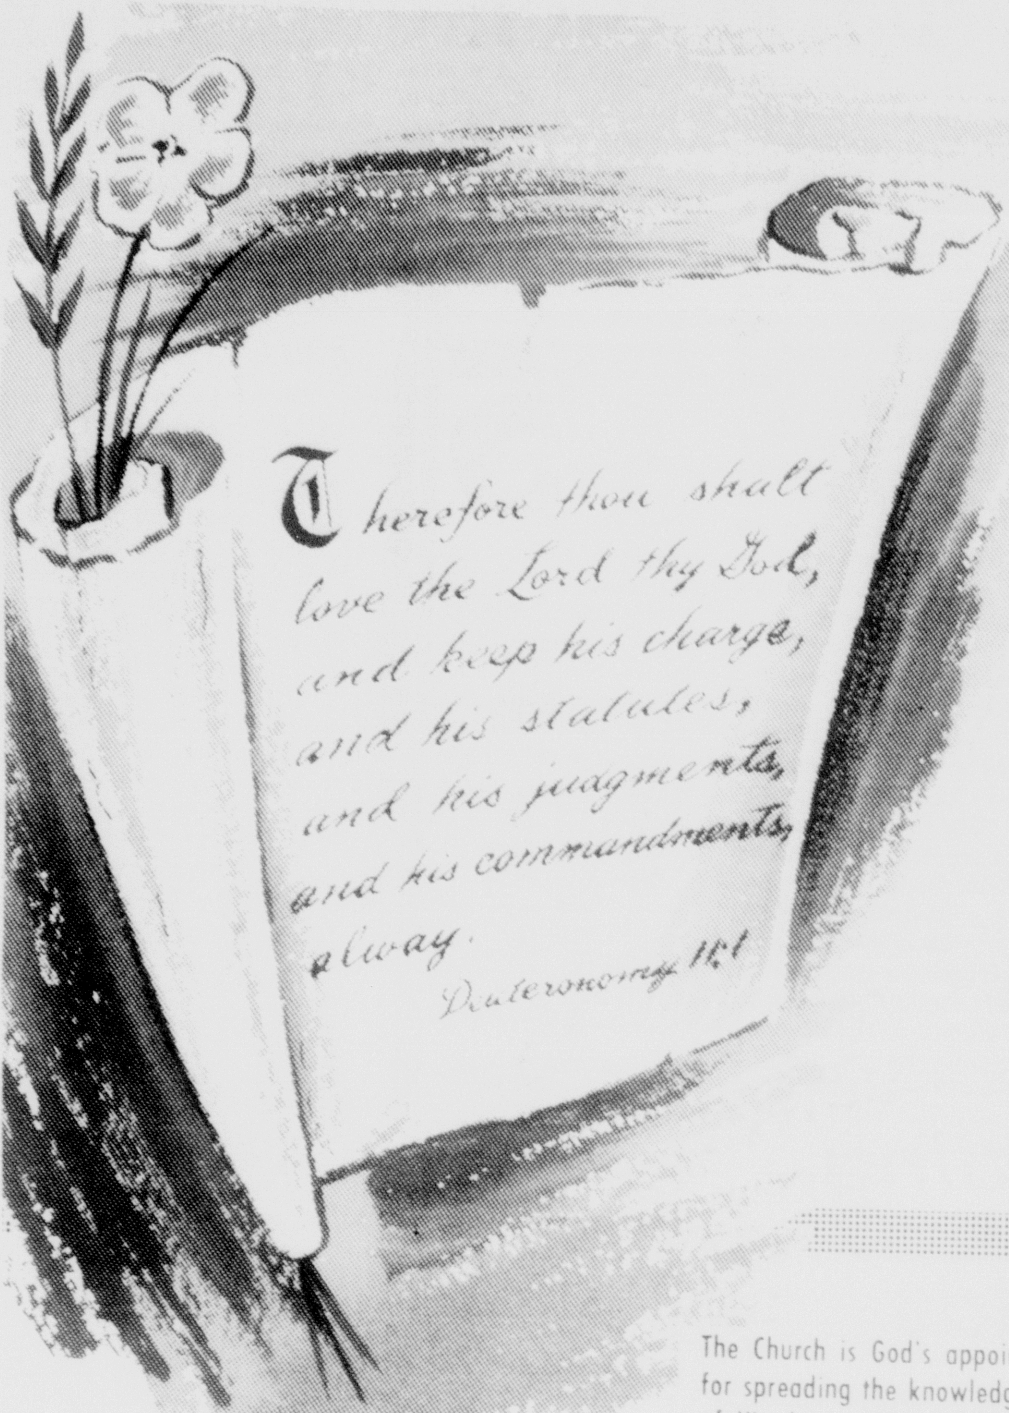 Therefore thou shalt
love the Lord thy God,
and keep his charge,
and his statutes,
and his judgments,
and his commandments,
alway.
Deuteronomy 11:1
The Church is God's appoi
for spreading the knowledg